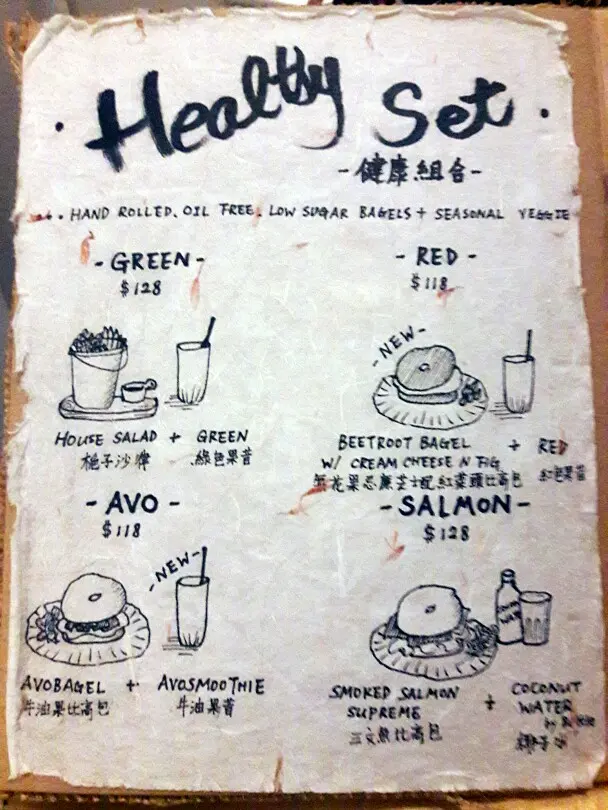 · Healthy Set ·
-健康組合-
HAND ROLLED. OIL FREE. LOW SUGAR BAGELS + SEASONAL VEGGIE
- GREEN -
$128
HOUSE SALAD + GREEN
梔子沙律 綠色果昔
- RED -
$118
-NEW-
BEETROOT BAGEL + RED
W/ CREAM CHEESE N FIG
無花果忌廉芝士配紅菜頭比高包 紅色果昔
- AVO -
$118
-NEW-
AVOBAGEL + AVOSMOOTHIE
牛油果比高包 牛油果昔
- SALMON -
$128
SMOKED SALMON + COCONUT
SUPREME WATER
三文魚比高包 by
椰子水